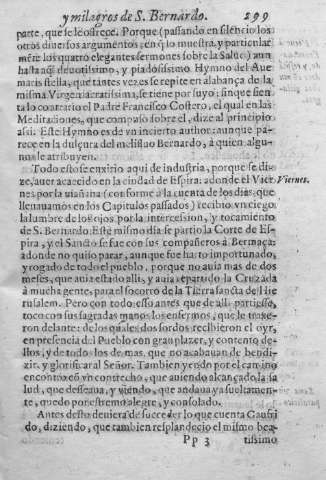 y milagros de S. Bernardo. 299
parte, que se le ofrece. Porque (passando en silencio los
otros diversos argumentos, en q̃ lo muestra, y particular
mẽte los quatro elegantes sermones sobre la Salue) aun
hasta aq̃l deuotissimo, y piadosissimo Hymno del Aue
maris stella, que tantes vezes se repite en alabança de la
misma Virgen sacratissima, se tiene por suyo: sinque sien
ta lo contrario el Padre Francisco Costero, el qual en las
Meditaciones, que compuso sobre el, dize al principio
assi: Este Hymno es de vn incierto author: aunque pa-
rece en la dulçura del melifluo Bernardo, a quien algu-
nos le atribuyen.
Todo esto se enxirio aqui de industria, porque se di-
ze, auer acaecido en la ciudad de Espira: adonde el Vier-
nes por la mañana (conforme a la cuenta de los dias, que
lleuauamos en los Capitulos passados) recibio vn ciego
la lumbre de los ojos por la intercession, y tocamiento
de S. Bernardo. Este mismo dia se partio la Corte de Es-
pira, y el Sancto se fue con sus compañeros a Bernaça:
adonde no quiso parar, aunque fue harto importunado,
y rogado de todo el pueblo, porque no auia mas de dos
meses, que auia estado alli, y auia repartido la Cruzada
a mucha gente, para el socorro de la Tierra sancta de Hie
rusalem. Pero con todo esso antes que de alli partiesse,
toco con sus sagradas manos los enfermos, que le truxe-
ron delante: de los quales dos sordos recibieron el oyr,
en presencia del Pueblo con gran plazer, y contento de-
llos, y de todos los demas, que no acabauan de bendi-
zir, y glorificar al Señor. Tambien yendo por el camino
encontrò con vn contrecho, que auiendo alcançado la sa
lud, que desseaua, y viendo, que andaua ya sueltamen-
te, quedò por estremo alegre, y consolado.
Antes desto deuiera de succeder lo que cuenta Gaufri
do, diziendo, que tambien resplandecio el mismo bea-
Pp 3 tissimo
Viernes.